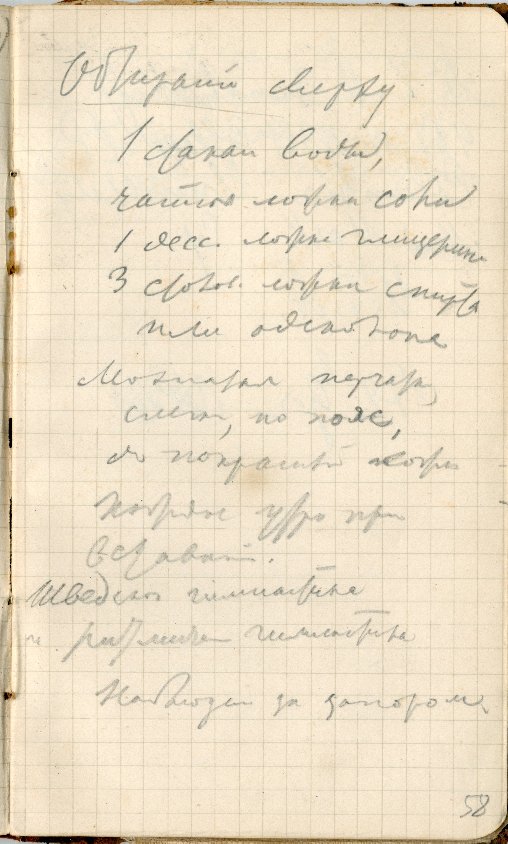 Обтирания сверху
1 стакан воды,
чайная ложка соды
1 десс. ложка глицерина
3 столов. ложки спирта
или одеколона
Мохнатая перчатка,
слегка, по пояс,
до покраснения кожи
Каждое утро при
вставании.
Шведская гимнастика
ритмическ гимнастика
Наблюден за запором
58